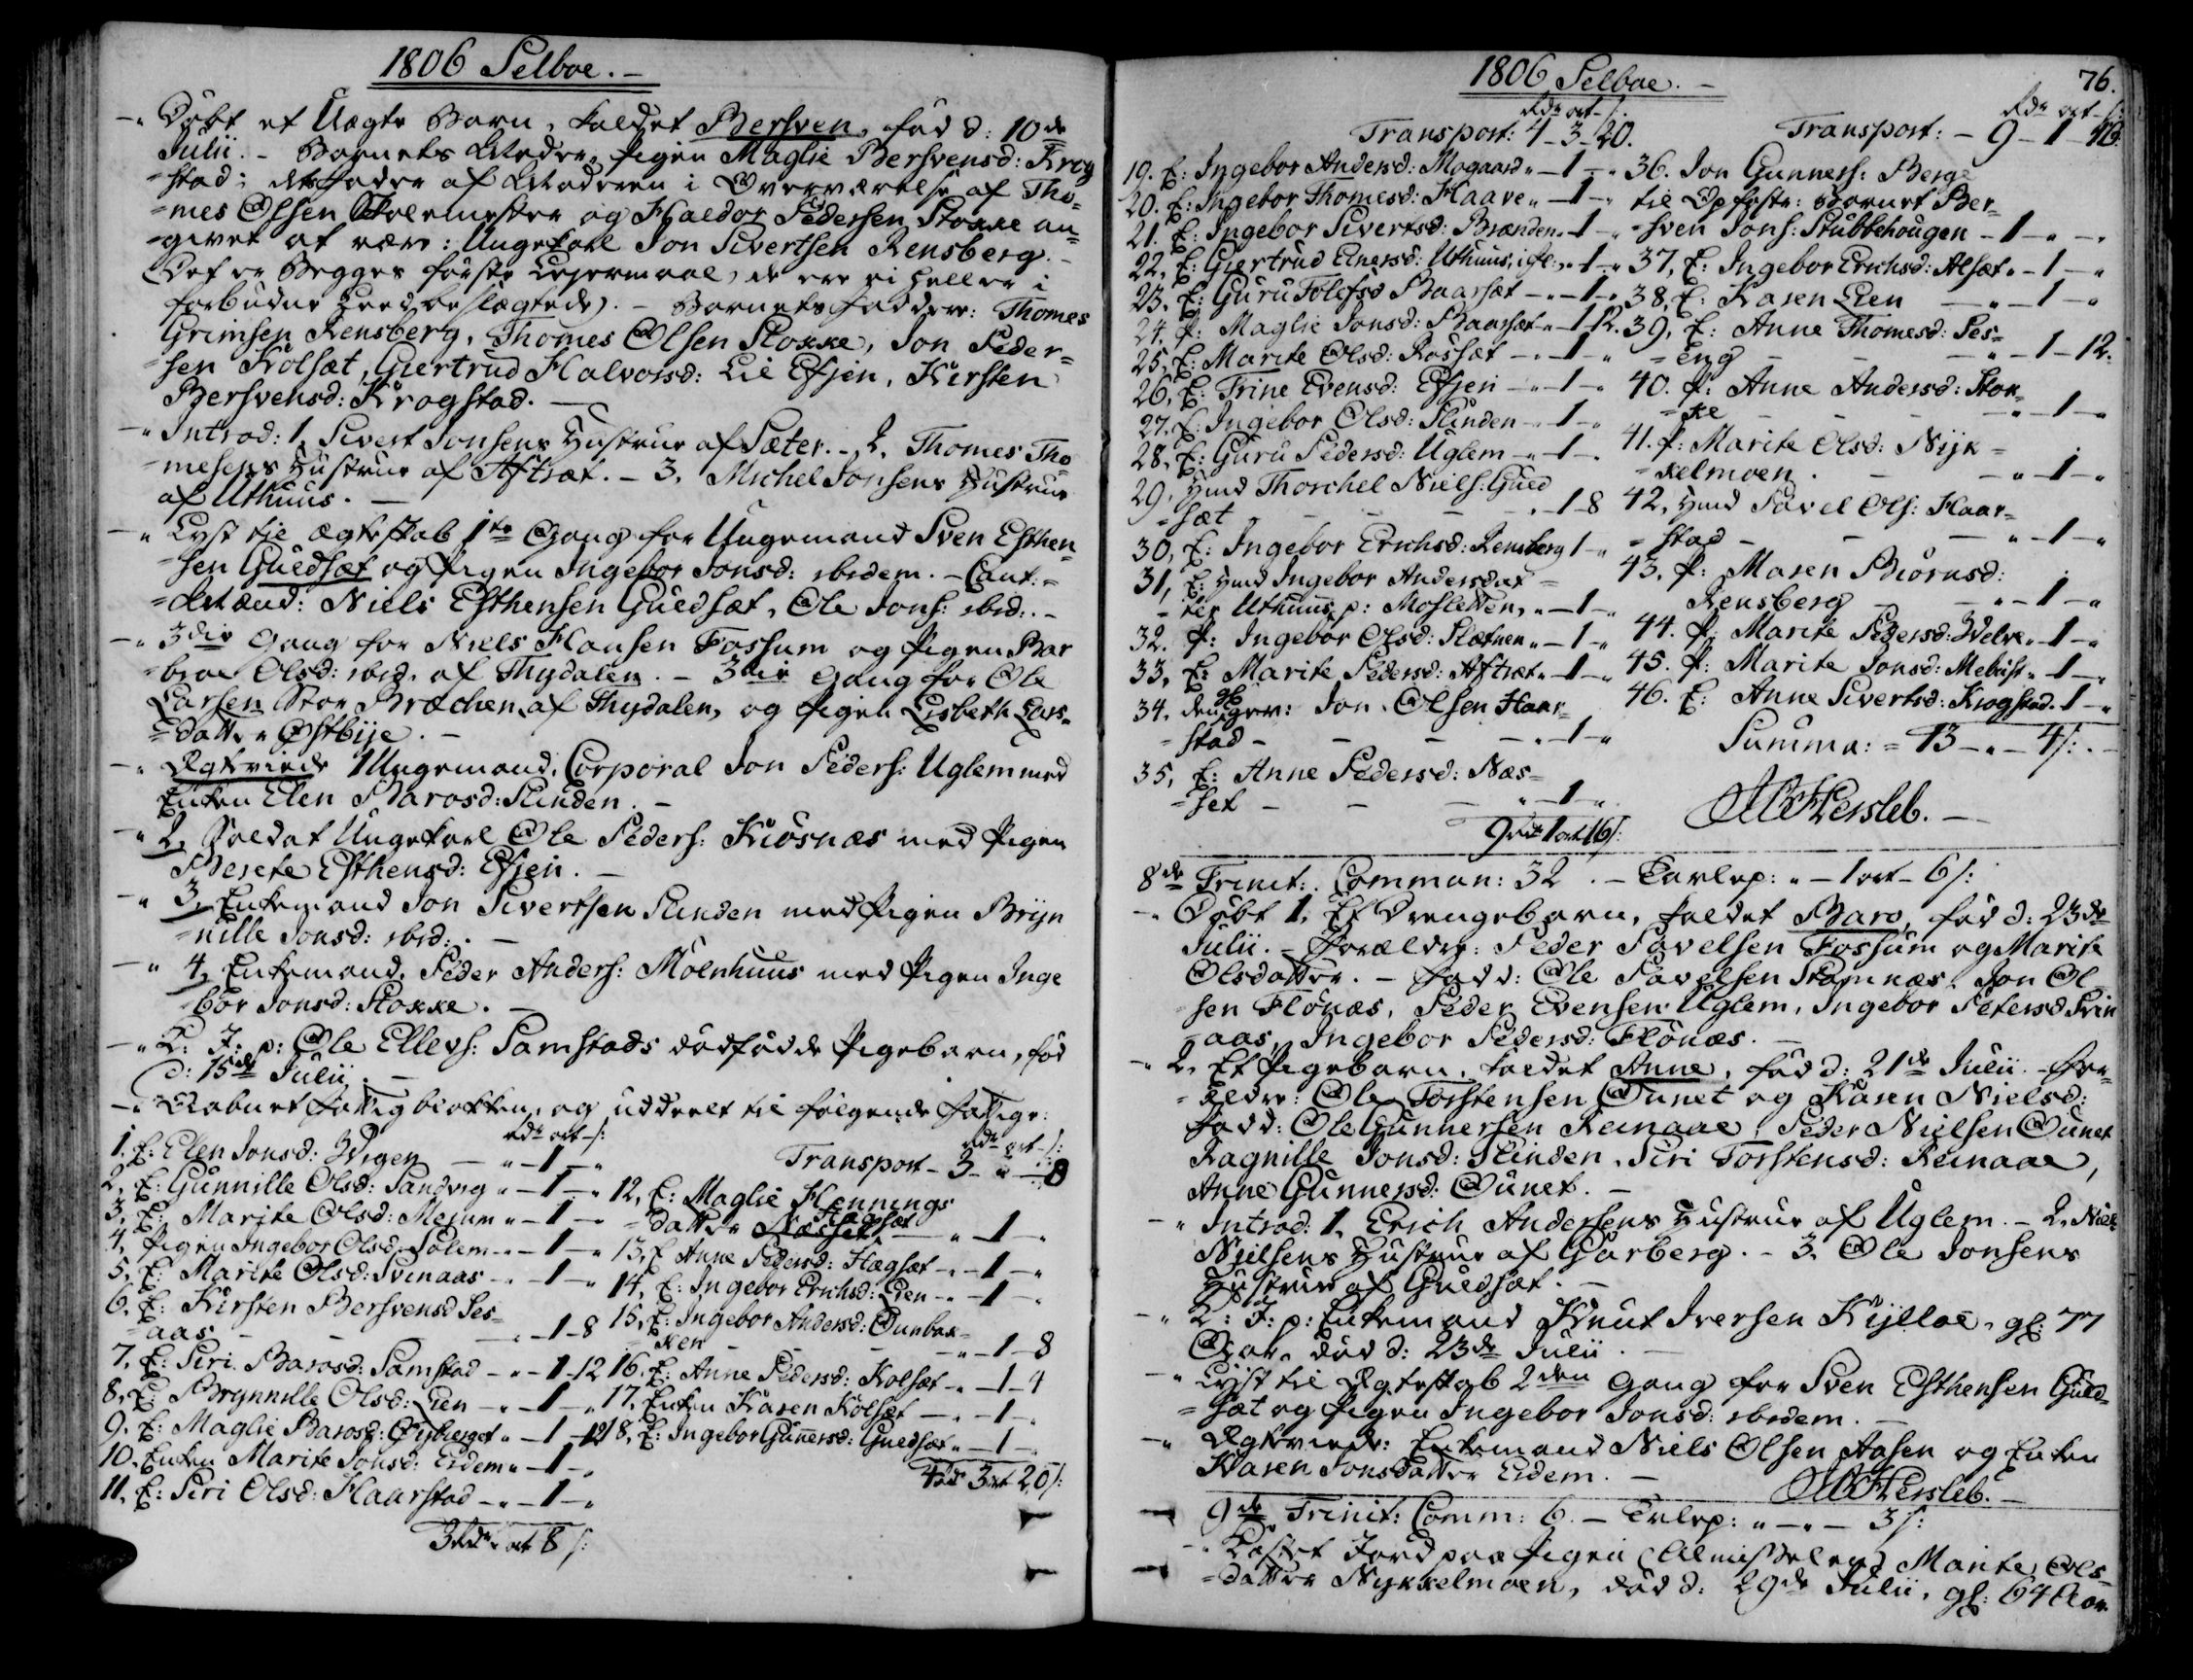 1806 Selboe.
Døbt et Uægte Barn, kaldet Bersven, fød d: 10de
Julii. - Barnets Moder, Pigen Maglie Bersvensd: Krog
=stad; dets Fader af Moderen i Overværelse af Tho=
=mes Olsen Skolemester og Haldor Pedersen Stokke an=
=givet at være: Ungekarl Jon Sivertsen Rensberg.
Det er Begges første Leiermaal, de ere ei heller i
forbudne Leed beslægtede. - Barnets Faddere: Thomes
Grimsen Rensberg, Thomes Olsen Stokke, Jon Peder=
=sen Kolset, Giertrud Halvorsd: Lil Efjen, Kirsten
Bersvensd: Krogstad.
Introd: 1, Sivert Jonsens Hustrue af Sæter. - 2, Thomes Tho
=mesens Hustrue af Aftræt. - 3, Michel Jonsens Hustrue
af Uthuus.
Lyst til Ægteskab 1te Gang for Ungemand Sven Esthen=
=sen Guldsæt og Pigen Ingebor Jonsd: ibidem. - Caut:=
Niels Esthensen Guldsæt, Ole Jons: ibid:
3die Gang for Niels Hansen Fossum og Pigen Bar
=broe Olsd: ibid. af Thydalen. - 3die Gang for Ole
Larsen Stor Brochen af Thydalen, og Pigen Lisbeth Lars=
=datter Østbye.
Ægteviede 1 Ungemand, Corporal Jon Peders: Uglem med
Enken Elen Barosd: Slinden.
2, Soldat Ungekarl Ole Peders: Kiosnæs med Pigen
Berete Esthensd: Efjen.
3, Enkemand Jon Sivertsen Slinden med Pigen Bryn
=nille Jonsd: ibid:
4, Enkemand, Peder Anders: Moenhuus med Pigen Inge
=bor Jonsd: Stokke.
L: J: p: Ole Ellevs: Samstads dødfødde Pigebarn, fød
d: 15de Julii.
Aabnet Fattigblokken, og uddeelt til følgende Fattige:
rdr ort s:
1. E: Elen Jonsd: Wigen - " - 1 - "
2, E: Gunnille Olsd: Sandvig " - 1 - "
3, E: Marite Olsd: Mejum " - 1 - "
4, Pigen Ingebor Olsd: Solem - " - 1 - "
5, E: Marite Olsd: Svinaas - " - 1 - "
6, E: Kirsten Bersvensd Ses=
=aas - - " - 1 - 8
7, E: Siri Barosd: Samstad - " - 1 - 12
8, E: Brynnille Olsd: Lien - " - 1 - "
9. E: Maglie Barosd: Øyberget " - 1 - 12
10. Enken Marite Jonsd: Eidem " - 1 - "
11. E: Siri Olsd: Haarstad - " - 1 - "
3 rdr " ort 8 s:
rdr ort s:
Transport - 3 - " - 8
12, E: Maglie Hennings
=datter " - 1 - "
13, E Anne Pedersd: Hægsæt - " - 1 - "
14, E: Ingebor Erichsd: Lien - " - 1 - "
15, E: Ingebor Andersd: Dunbak=
=ken - " - 1 - 8
16. E: Anne Pedersd: Kolsæt - " - 1 - 4
17, Enken Karen Kolsæt - " - 1 - "
18, E: Ingebor Gunnersd: Guldsæt " - 1 - "
4 rdr 3 ort 20 s:
1806 Selboe.
76.
rdr ort s:
Transport: 4 - 3 - 20.
19. E: Ingebor Andersd: Mogaard " - 1 - "
20. E: Ingebor Thomesd: Haave " - 1 - "
21. E: Ingebor Sivertsd: Brænden " - 1 - "
22, E: Giertrud Einersd: Uthuus, " - 1 - "
23. E: Guru Tolefsd Baarsæt - " - 1 - "
24. P: Maglie Jonsd: Baarsæt " - 1 - 12.
25, E: Marite Olsd: Rossæt - " - 1 - "
26, E: Trine Evensd: Efjen - " - 1 - "
27. E: Ingebor Olsd: Slinden - " - 1 - "
28, E: Guru Pedersd: Uglem - " - 1 - "
29, Hmd Thorchel Niels: Guld
=sæt - - " - 1 - 8
30, E: Ingebor Erichsd: Rensberg 1 - "
31, E: Hmd Ingebor Andersdat=
=ter Uthuus, p: Mosletten, " - 1 - "
32. P: Ingebor Olsd: Slætnen " - 1 - "
33, E: Marite Pedersd: Aftræt " - 1 - "
34. Drengen: Jon Olsen Haar=
=stad - - - " - 1 - "
35, E: Anne Pedersd: Næs=
=set - - " - 1 - "
9 rdr 1 ort 16 s:
rdr ort s:
Transport: - 9 - 1 - 16.
36. Jon Gunners: Berge
til Opfostr: Barnet Ber=
=sven Jons: Stubbehougen - 1 - "
37, E: Ingebor Erichsd: Alsæt " - 1 - "
38, E: Karen Lien - " - 1 - "
39, E: Anne Thomesd: Ses=
=eng - - " - 1 - 12.
40. P: Anne Andersd: Stok=
=ke - - " - 1 - "
41. P: Marite Olsd: Nyk=
=kelmoen. - - " - 1 - "
42, Hmd Pavel Ols: Haar=
=stad - - " - 1 - "
43. P: Maren Biørnsd:
Rensberg - " - 1 - "
44. P: Marite Pedersd: Welve " - 1 - "
45. P: Marite Jonsd: Mebust " - 1 - "
46. E: Anne Sivertsd: Krogstad " 1 - "
Summa: = 13 - " - 4 s:
Hersleb.
8de Trinit: Commun: 32. - Tavlep: " - 1 ort - 6 s:
Døbt 1, Et Drengebarn, kaldet Baro, fød d: 23de
Julii. - Forældre: Peder Pavelsen Fossum og Marite
Olsdatter. - Fadd: Ole Pavelsen Stamnæs, Jon Ol=
=sen Flønæs, Peder Evensen Uglem, Ingebor Petersd Svin
=aas, Ingebor Pedersd: Flønæs.
2, Et Pigebarn, kaldet Anne, fød d: 21de Julii. - For=
=ældre: Ole Torstensen Ounet og Karen Nielsd:
Fadd: Ole Gunnersen Reinaae, Peder Nielsen Ounet
Ragnille Jonsd: Slinden, Siri Torstensd: Reinaae,
Anne Gunnersd: Ounet.
Introd: 1, Erich Andersens Hustrue af Uglem. - 2, Niels
Nielsens Hustrue af Garberg. - 3, Ole Jonsens
Hustrue af Guldsæt.
L: J: p: Enkemand Knut Iversen Kylloe, gl: 77
Aar, død d: 23de Julii.
Lyst til Ægteskab 2den Gang for Sven Esthensen Guld=
=sæt og Pigen Ingebor Jonsd: ibidem.
Ægteviede: Enkemand Niels Olsen Aasen og Enken
Karen Jonsdatter Eidem.
Hersleb.
9de Trinit: Comm: 6. - Tavlep: " - " - 3 s:
Kastet Jord paa Pigen (Almisselem) Marite Ols=
=datter Nykkelmoen, død d: 29de Julii, gl: 64 Aar.